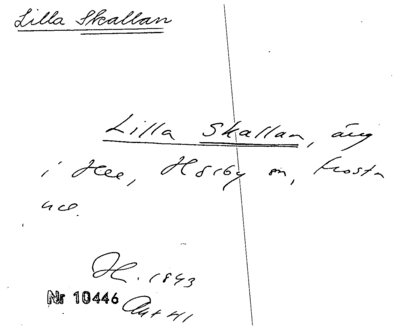 Lilla Skallan
Lilla Skallan, äng
i Hee, Hörby sn, Frosta
H. 1843
Nr 10446